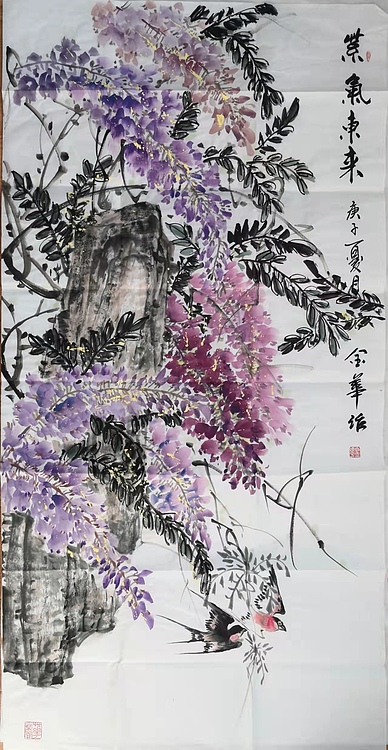 紫氣東来
庚子夏月
金華作